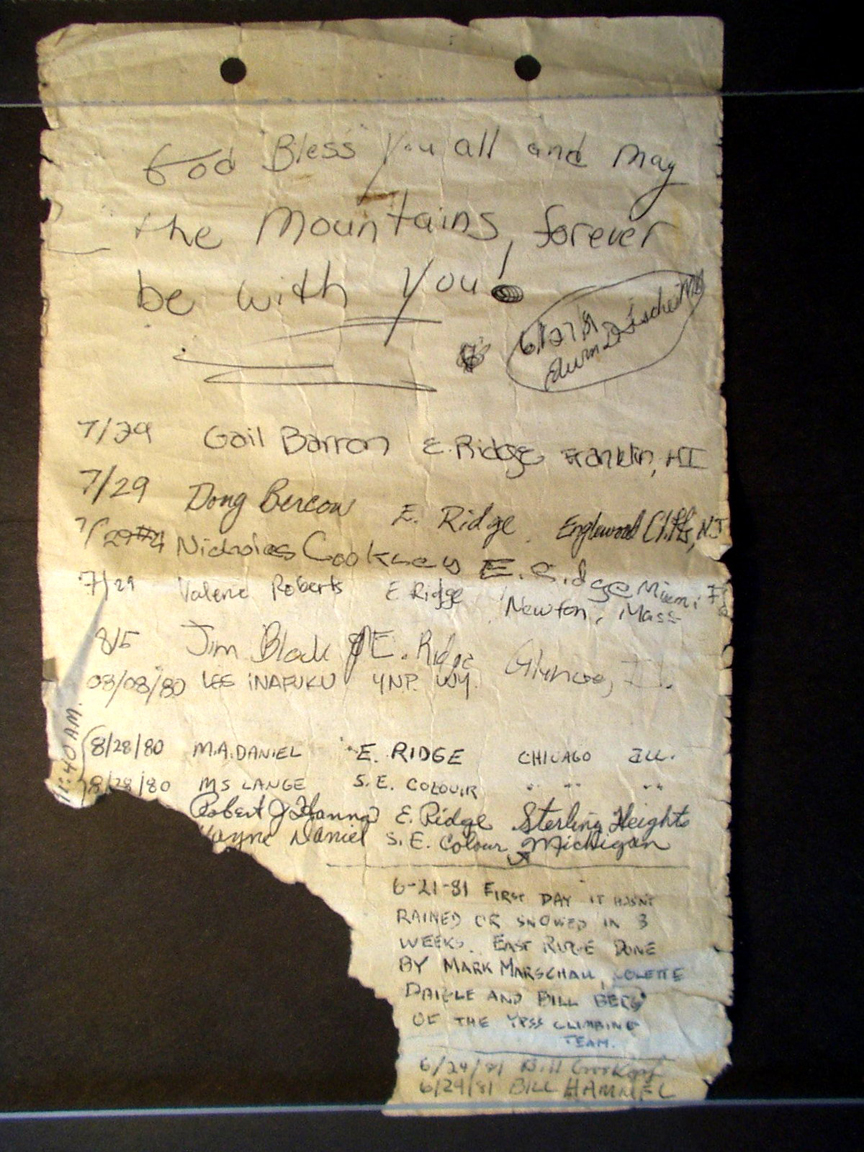 God Bless you all and may
the Mountains, forever
be with you!
6/27/81
7/29 Gail Barron E. Ridge Franklin, MI
7/29 Doug Bercow E. Ridge Englewood Cliffs, NJ
7/29 Nicholas E. Ridge Miami, Fl
7/29 Valerie Roberts E Ridge Newton, Mass
8/5 Jim Block E. Ridge
08/08/80 LEE INAFUKU YNP. WY.
11:40 A.M.
8/28/80 M.A. DANIEL E. RIDGE CHICAGO ILL.
8/28/80 MS LANGE S. E. COLOUIR " " " "
Robert J Hanna E. Ridge Sterling Heights
Wayne Daniel S. E. Colour Michigan
6-21-81 FIRST DAY IT HASNT
RAINED OR SNOWED IN 3
WEEKS. EAST RIDGE DONE
BY MARK MARSCHALL, COLETTE
DAIGLE AND BILL BERG
OF THE YPSS CLIMBING
TEAM.
6/24/81 Bill
6/29/81 BILL HAMMEL